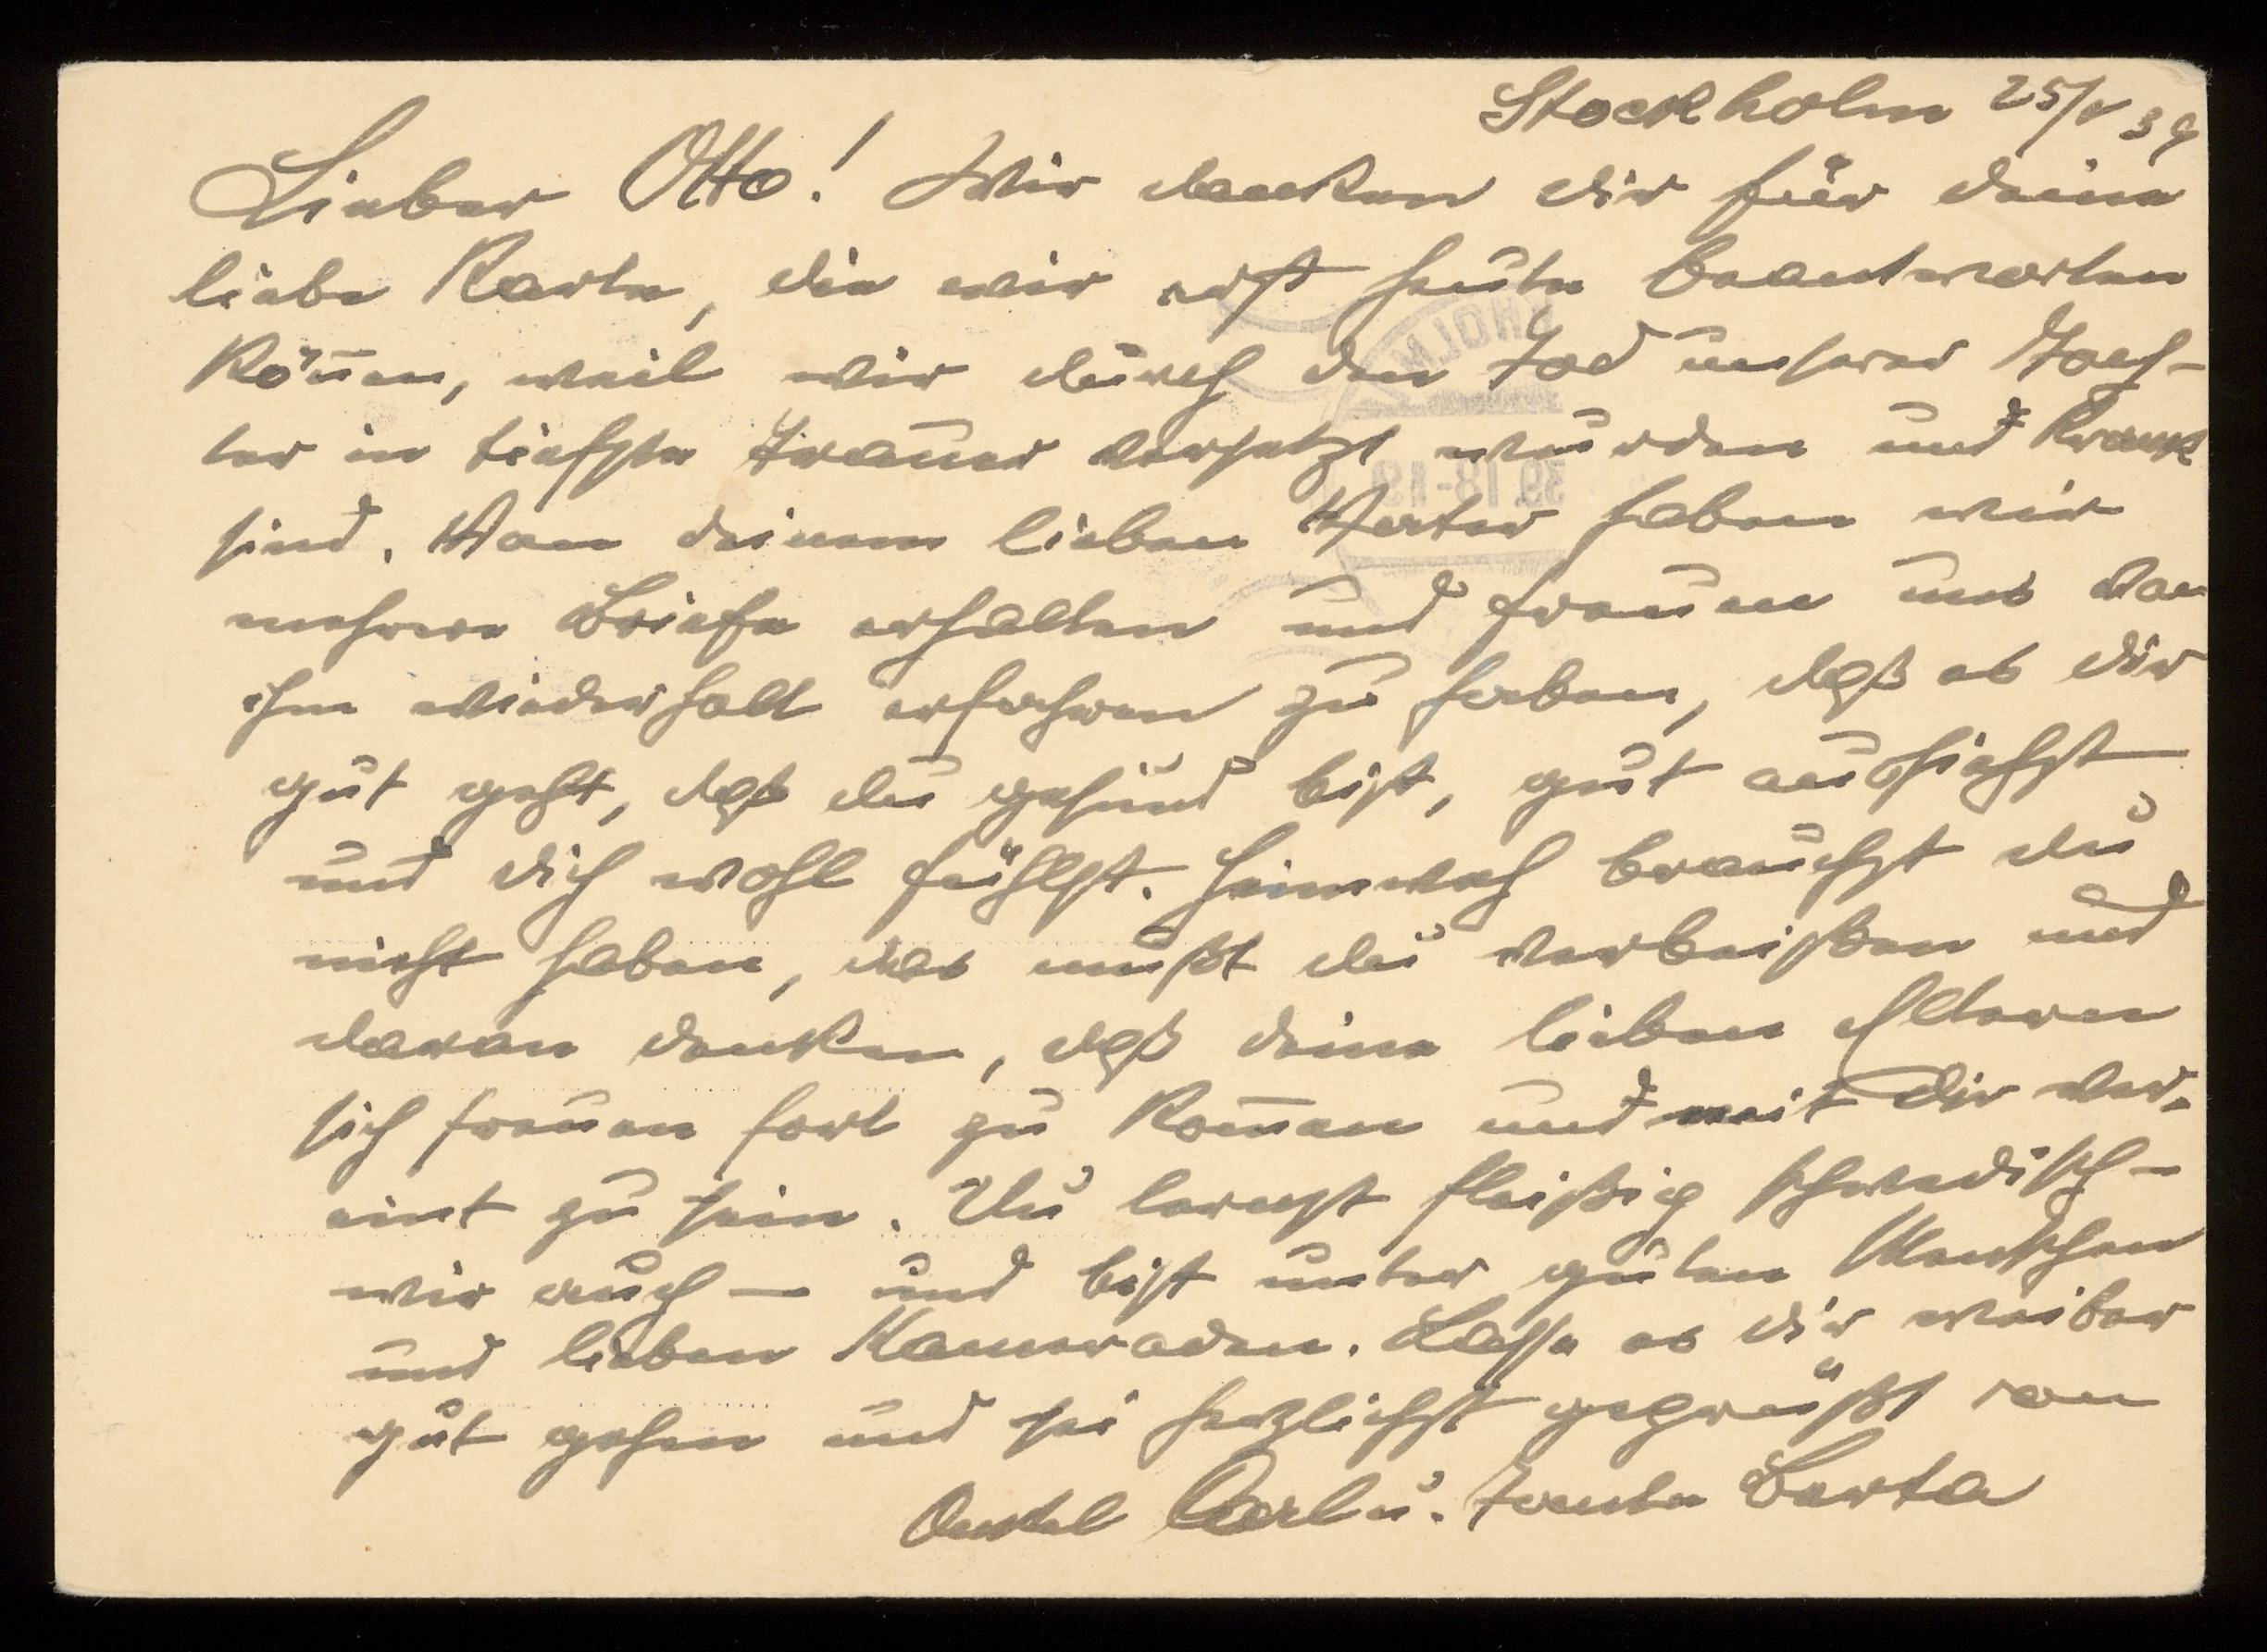 Stockholm 25/V 39
Lieber Otto! Wir danken dir für deine
liebe Karte, die wir erst heute beantworten
kön̅en, weil wir durch den Tod unserer Toch-
ter in tiefste Trauer versetzt wurden und krank
sind. Von deinem lieben Vater haben wir
mehrere Briefe erhalten und freuen uns von
ihm wiederholt erfahren zu haben, daß es dir
gut geht, daß du gesund bist, gut aussiehst
und dich wohl fühlst. Heimweh brauchst du
nicht haben, das mußt du verbeißen und
daran denken, daß deine lieben Eltern
sich freuen fort zu kom̅en und mit dir ver-
eint zu sein. Du lernst fleißig schwedisch -
wir auch - und bist unter guten Menschen
und lieben Kameraden. Lasse es dir weiter
gut gehen und sei herzlichst gegrüßt von
Onkel Carl u. Tante Berta
KHOLM
39.18-19